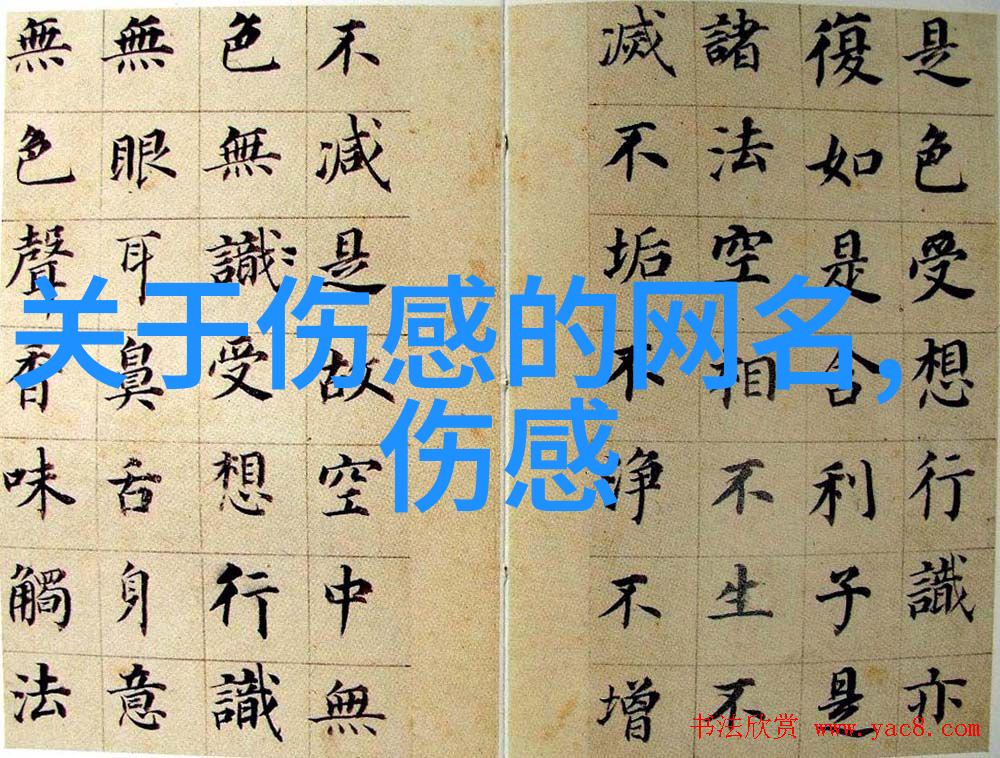 是色受想行識亦
復如是舍利子是
諸法空相不生不
滅不垢不淨不增
不減是故空中無
色無識受想行識
無眼耳鼻舌身意
無色聲香味觸法
关于伤感的网名,
伤感
书法欣赏 www.yac8.com